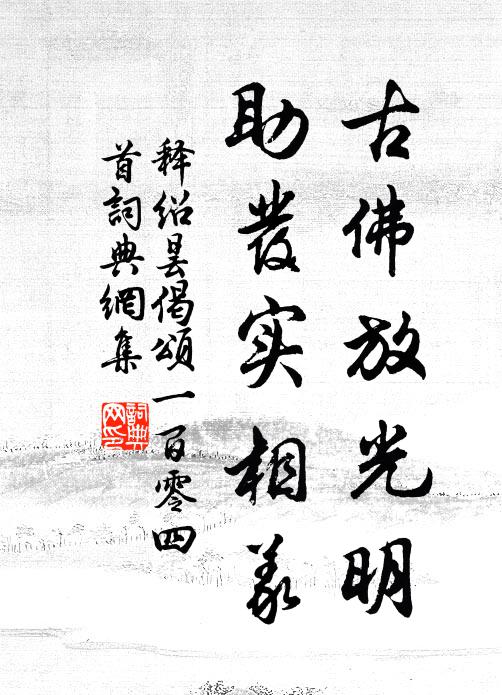 古佛放光明
助发实相义
释绍昙偈颂一百零四
首词典网集
词典网印